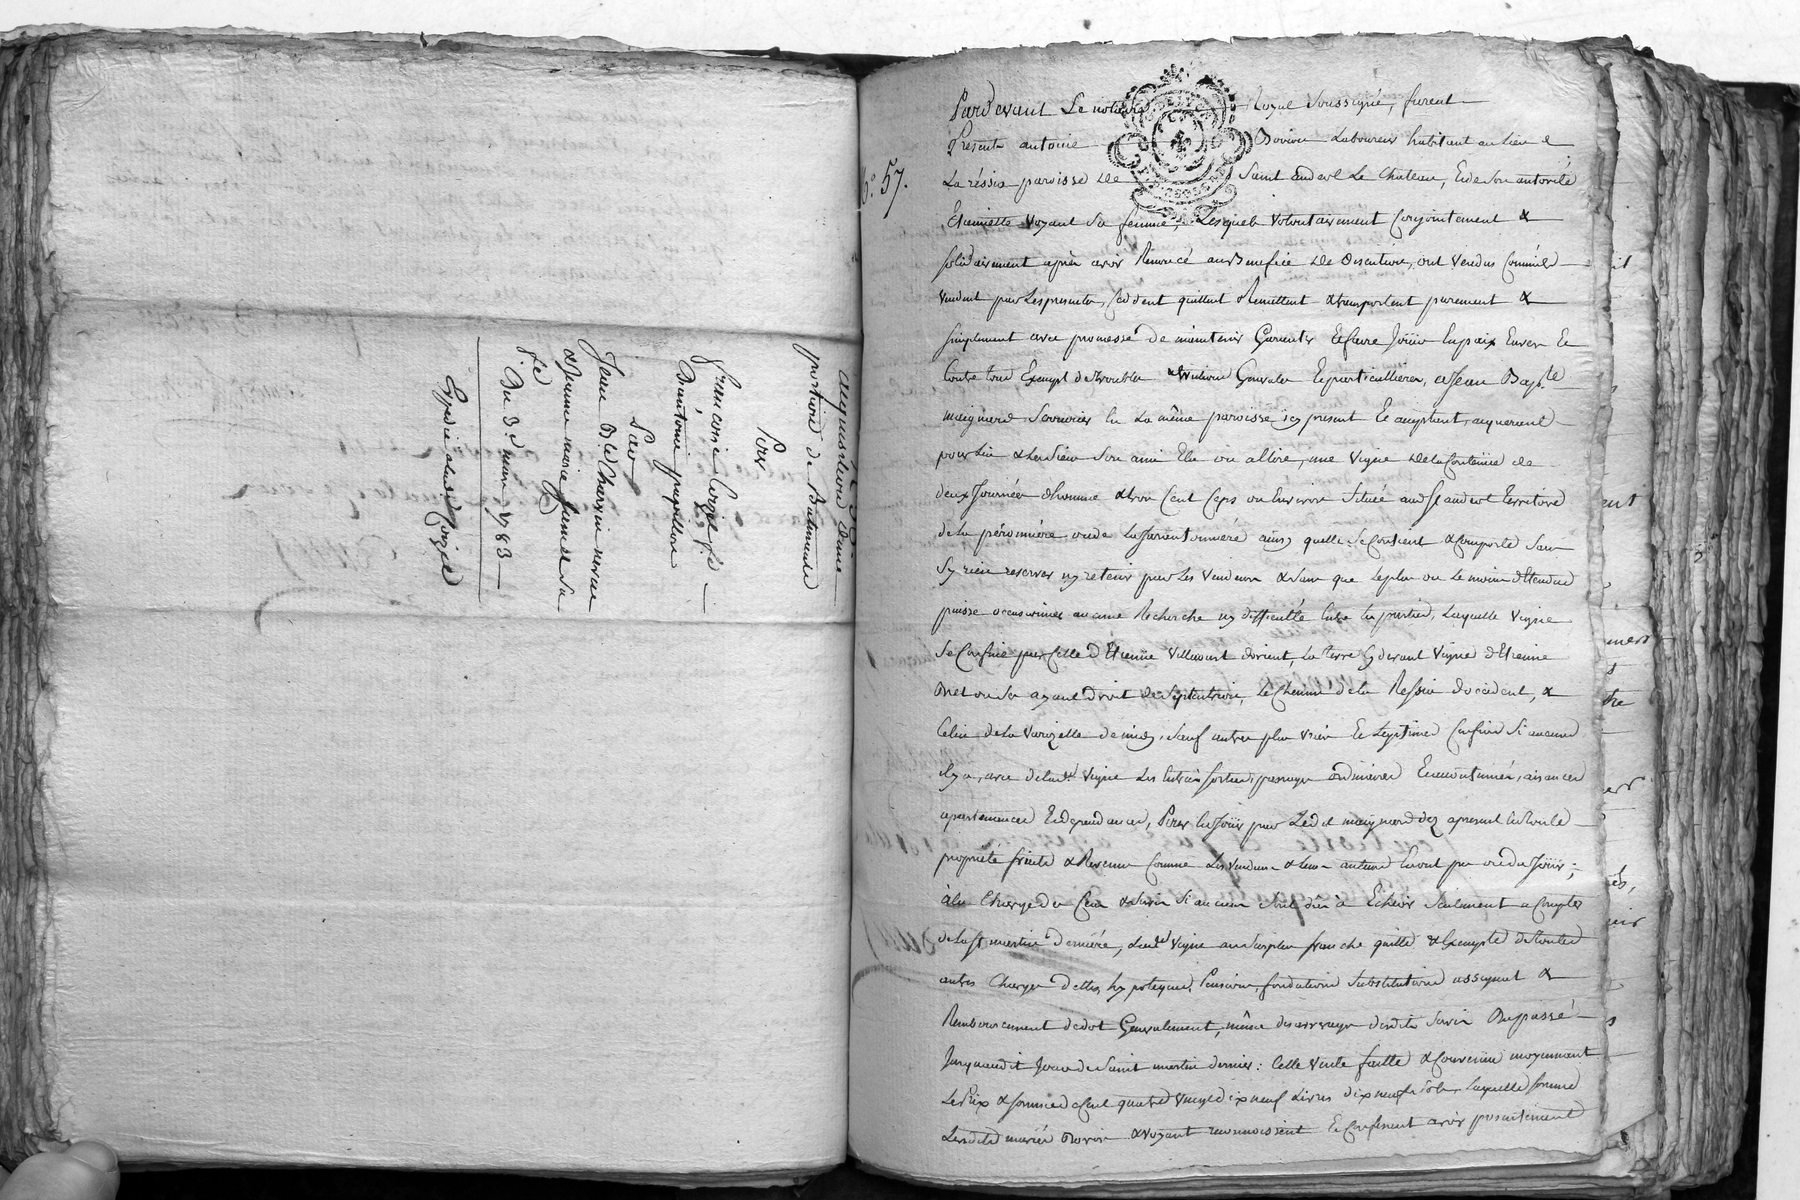 acquisition d'une
portion de Batiments
Pour
francois Corgié f.e
D'antoine papillon
Par
Jean B.te Chervin mercier
& Jeanne marie Jamet sa
f.e
Du 3.e mars 1783
Expedié audit Corgié
N.o 57.
Pardevant Le notaire Royal soussigné, furent
Presents antoine Bovier Laboureur habitant au lieu de
La réssia paroisse de Saint Andeol Le Chateau, & de son autorité
Etiennette Voyant sa femme, Lesquels volontairement Conjointement &
solidairement après avoir Renoncé au Benefice de discution, ont vendus Comme ils
vendent par Les presentes, cèddent quittent Remettent & transportent purement &
simplement avec promesse de maintenir Garantir & faire Joüir en paix Envers &
Contre tous Exempt de troubles & Evictions Generales & particullieres, a Jean Bap.te
maignard Serrurier en La même paroisse icy present & acceptant, acquereur
pour Lui & Les siens son ami Elu ou a Elire, une vigne de la Contenüe de
deux Journées d'homme & trois Cent Ceps ou Environ Située aud. S.t andeol territoire
de la péronnière ou de La sarrentonniere ainsy quelle se Contient & Comporte Sans
s'y rien reserver ny retenir par Les vendeurs & sans que Le plus ou Le moins d'Etendue
puisse occasionner aucune Recherche ny difficulté Entre les parties, Laquelle vigne
se Confine par Celle d'Etienne Villecourt d'orient, La terre Cy devant vigne d'Etienne
Brel ou ses ayant droit de septentrion, Le Chemin de la Ressia d'occident, &
Celui de la Varizelle de midy, sauf autres plus vrais & Legitimes Confins Si aucuns
il y a, avec de lad.e vigne Les Entrées sorties, passages ordinaires & accoutumés, aisances
apartenances & dependances, Pour En Joüir par Ledit maignard dez apresent En toute
propriété fruits & Revenus Comme Les vendeurs & Leurs auteurs En ont pu ou du Joüir;
à la Charge des Cens & servis Si aucuns sont dûs à Echoir Seulement a Compter
de La S.t martin derniére, Lad.e vigne au surplus franche quitte & Exempte de toutes
autres Charges dettes, hypoteques, Pensions, fondations substitutions assignat &
Remboursement de dot Generalement, même des arrerages desdits servis Du passé
Jusquaudit Jour de Saint martin dernier: Cette vente faitte & Convenüe moyennant
Le Prix & somme de Cent quatre vingt dix neuf Livres dix neuf sols, Laquelle somme
Lesdits mariés Bovier & Voyant reconnoissent & Confessent avoir presentement